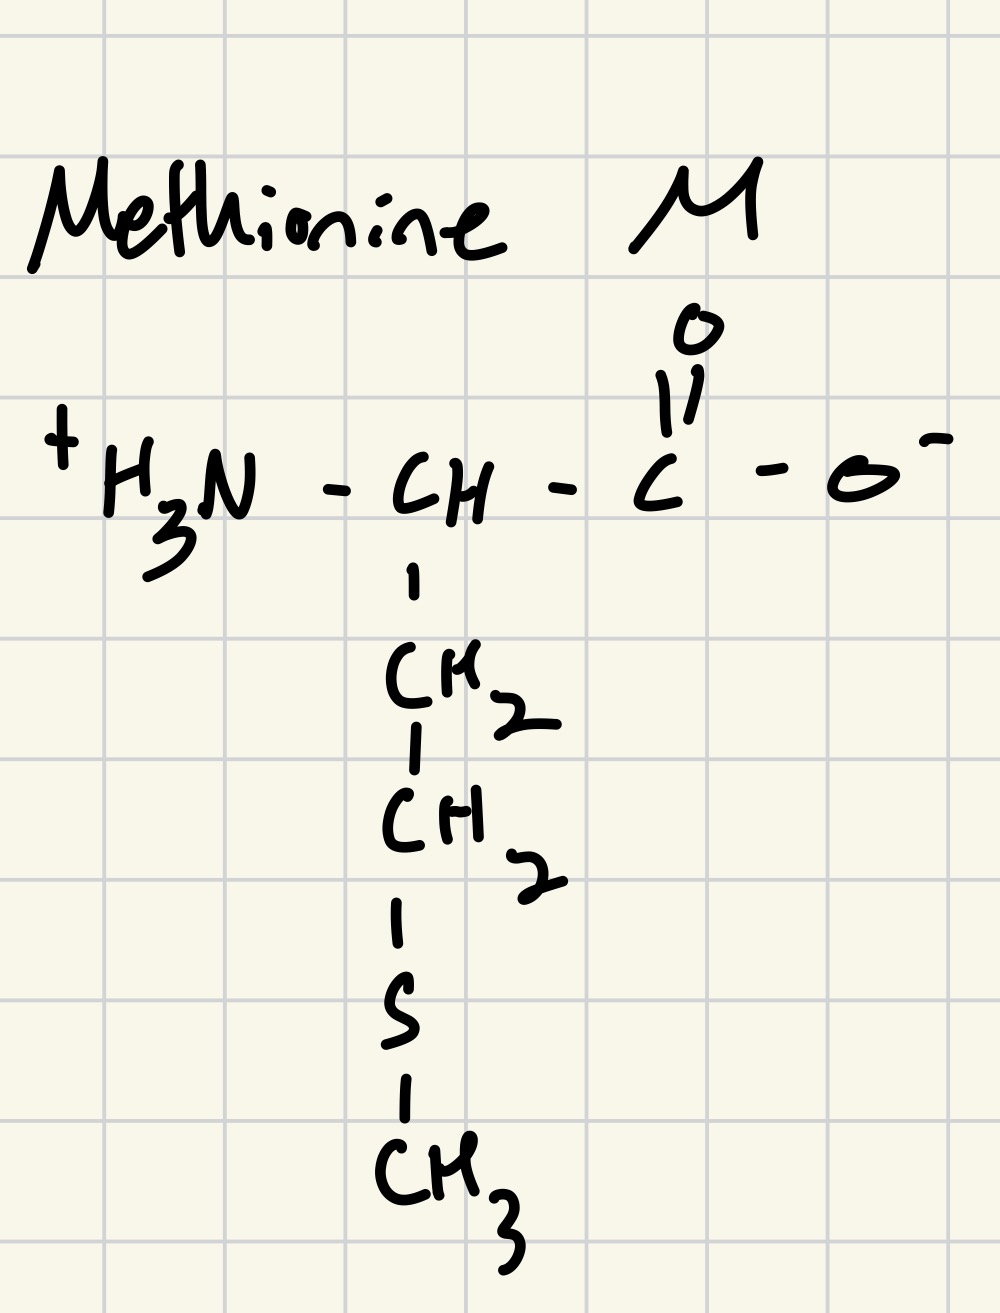 Methionine M
O
||
+H3N - CH - C - O-
|
CH2
|
CH2
|
S
|
CH3